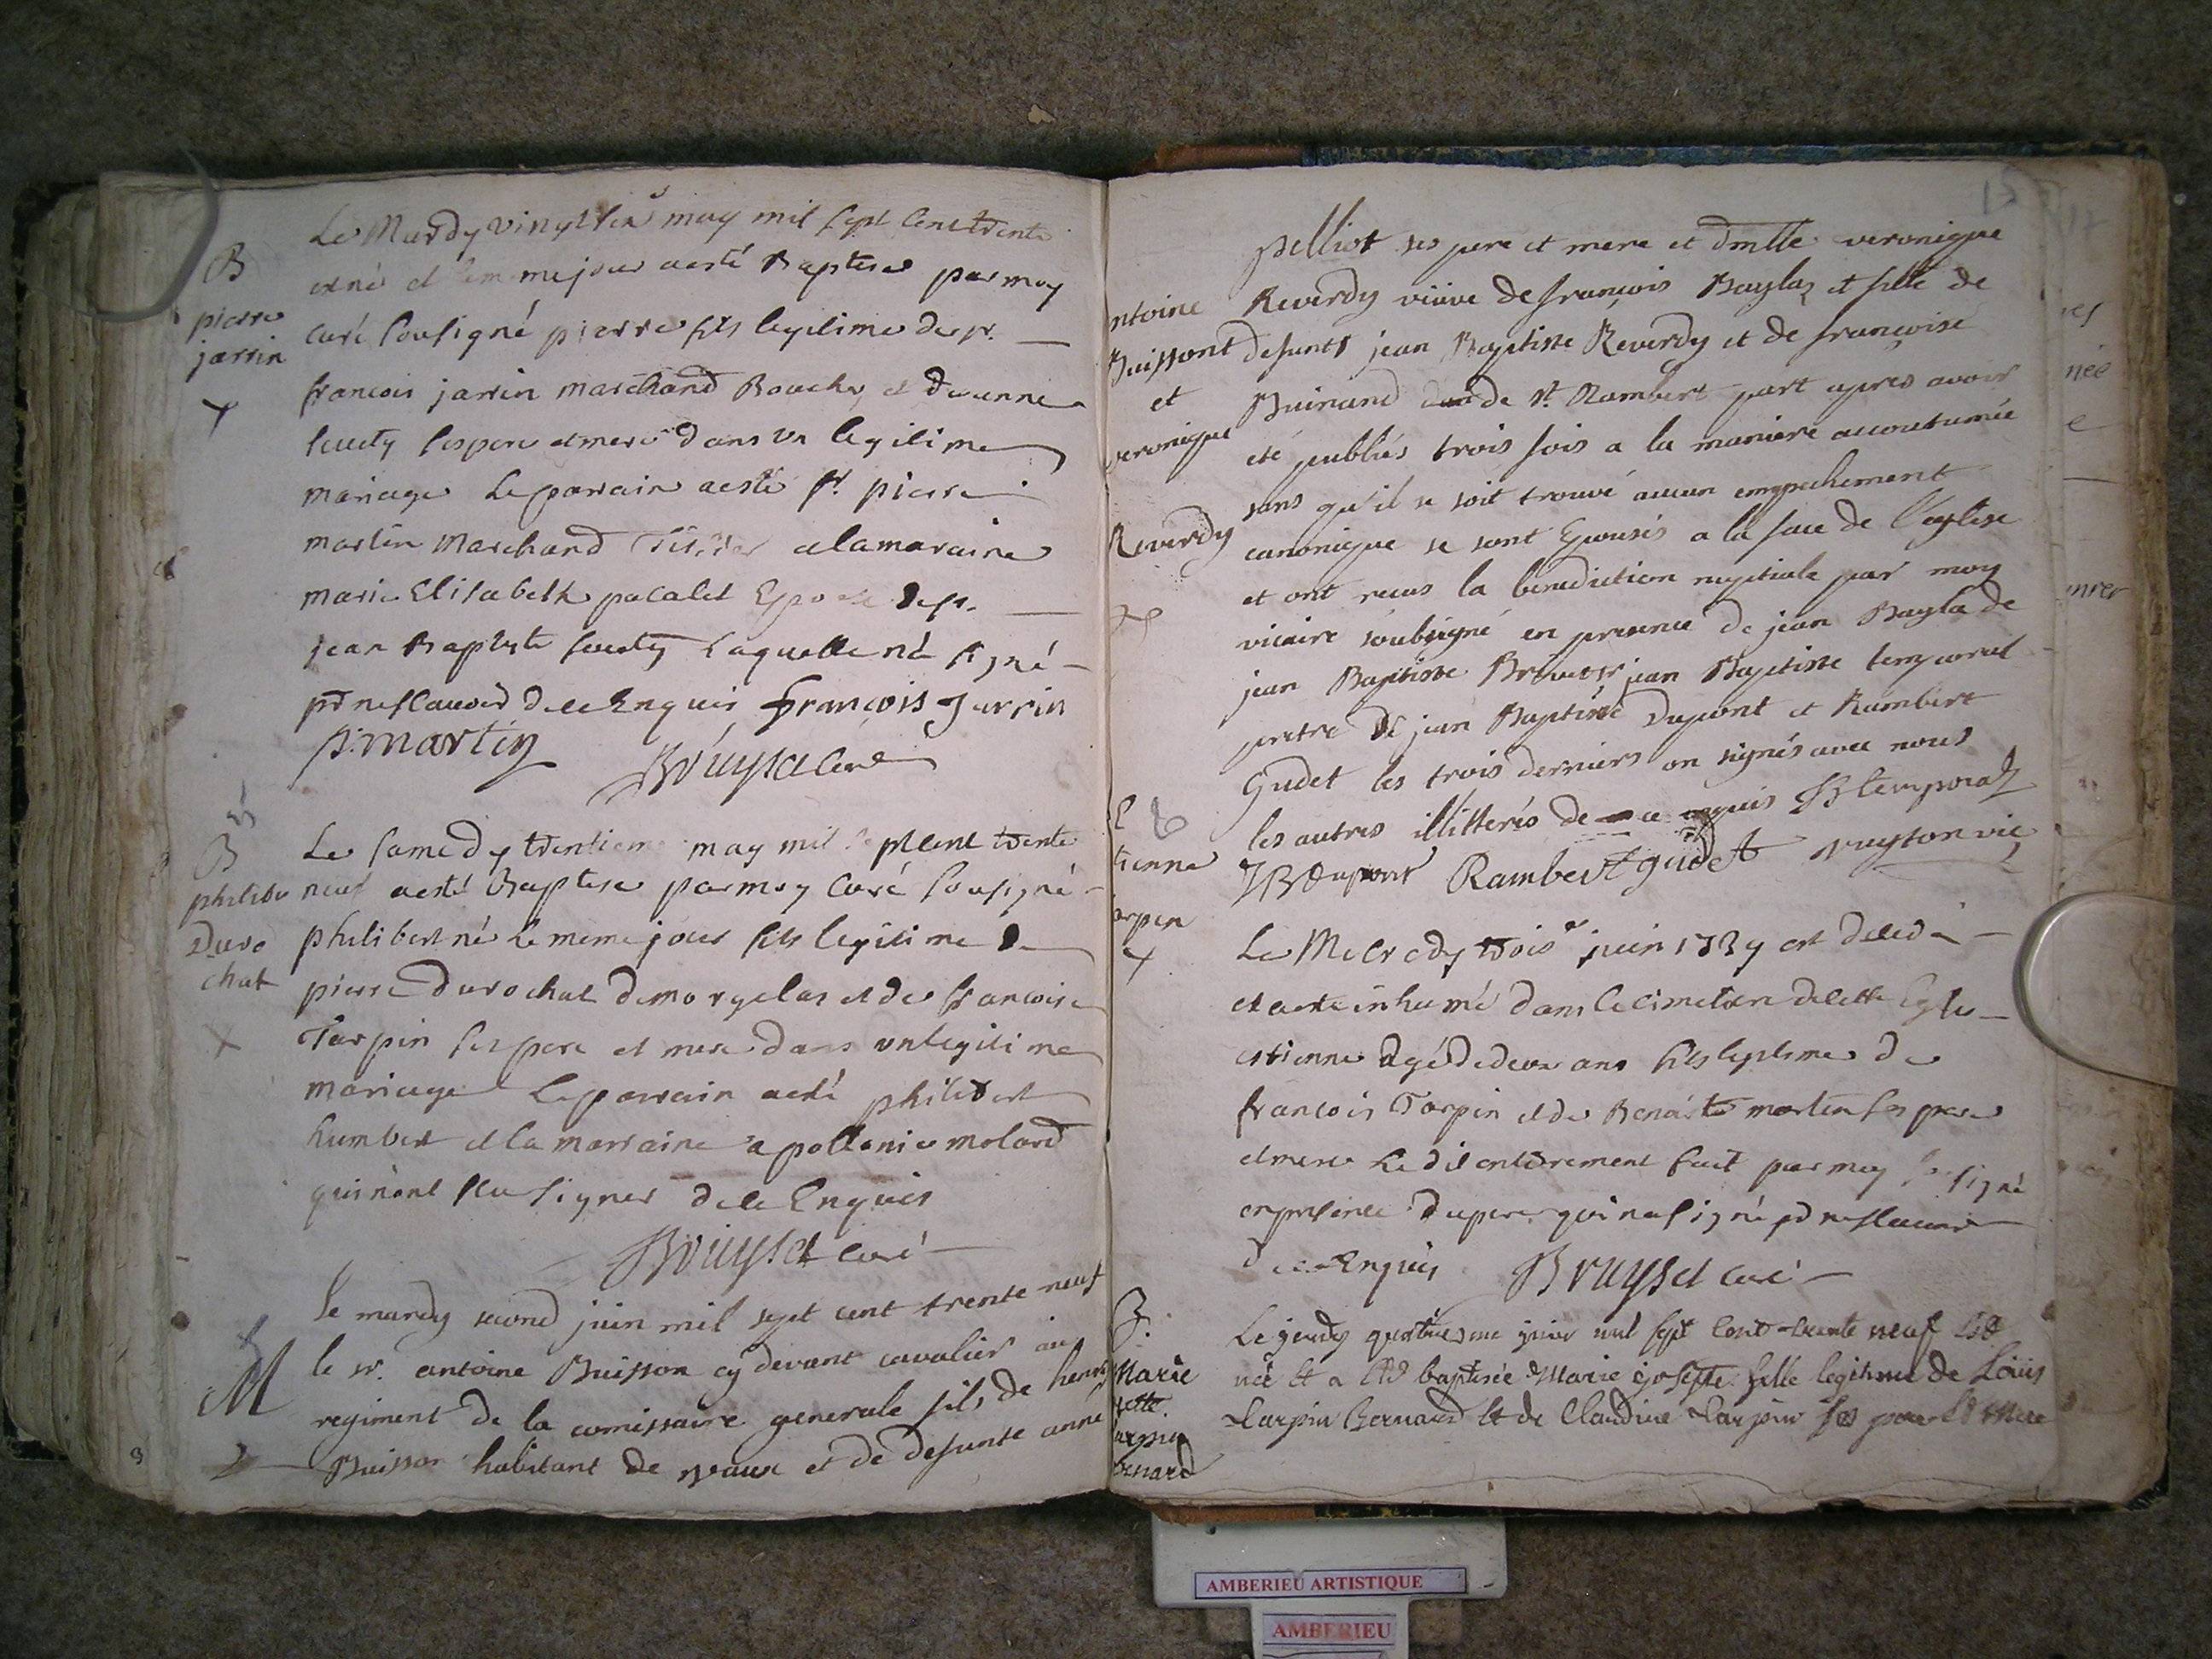 B
pierre
jarrin
Le Mardy vingt six may mil sept cent trente
et né et le meme jour a esté Baptisé par moy
curé sousigné pierre fils legitime de sr.
francois jarrin marchand Boucher et de anne
seuety ses pere et mere dans un legitime
mariage le parrain a esté sr. pierre
martin marchand et la maraine
marie Elisabeth pacalet Epouse de sr.
jean Baptiste seuety laquelle n'a signé
pr ne scavoir de ce Enquis françois Jarrin
p. martin Bruyset curé
B
philibe
Duro
chat
Le samedy trentieme may mil sept cent trente
neuf a esté Baptisé par moy curé sousigné
philibert né le meme jour fils legitime de
pierre durochat de morgelas et de francoise
Tarpin ses pere et mere dans un legitime
mariage le parrain a esté philibert
humbert et la marraine apollonie molard
qui n'ont sceu signer de ce Enquis
Bruyset curé
M
le mardy second juin mil sept cent trente neuf
le sr. antoine Buisson cy devant cavalier au
regiment de la comissaire generale fils de henry
Buisson habitant de vaux et de defunte anne
ntoine
Buissont
et
veronique
Reverdy
pelliot ses pere et mere et dmlle veronique
Reverdy viuve de françois Baylaz et fille de
defunts jean Baptiste Reverdy et de françoise
Buinand de st. Rambert part apres avoir
eté publiés trois fois a la maniere accoutumée
sans qu'il se soit trouvé aucun empechement
canonique se sont Epousés a la face de l'eglise
et ont recus la benediction nuptiale par moy
vicaire soubsigné en presence de jean Bayla de
jean Baptiste Brivet sr jean Baptiste temporal
pretre de jean Baptiste Dupont et Rambert
Gudet les trois derniers on signés avec nous
les autres illitterés de ce enquis JB temporal
JB Dupont Rambert gudet bruyson vic
E
tienne
arpin
Le Mecredy trois e juin 1739 est decedé
et a esté inhumé dans le cimetiere de cette Eglise
estienne agé de deux ans fils legitime de
francois Tarpin et de Benoiste martin ses pere
et mere le dit enterrement fait par moy sousigné
en presence du pere qui n'a signé pr ne scavoir
de ce Enquis Bruyset curé
B.
Marie
sette
arpin
Benard
Le jeudy quatriesme juin mil sept cent trente neuf Est
née Et a Eté baptisée Marie josepte fille legitime de Loüis
Tarpin Bernard Et de Claudine Tarpin ses pere Et mere
AMBERIEU ARTISTIQUE
AMBERIEU